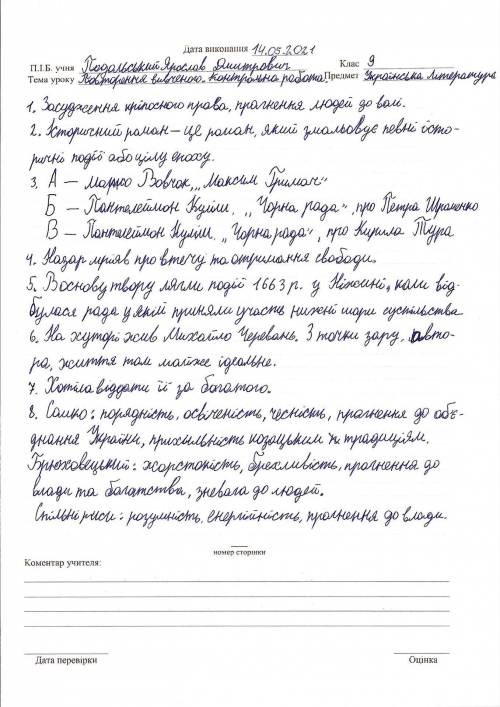 Дата виконання 14.05.2021
П.І.Б. учня Подольський Ярослав Дмитрович Клас 9
Тема уроку Повторення вивченого. Контрольна работа. Предмет Українська література
1. Засудження кріпосного права, прагнення людей до волі.
2. Історичний роман — це роман, який змальовує певні істо-
ричні події або цілу епоху.
3. А — Марко Вовчок, „Максим Гримач"
Б — Пантелеймон Куліш, „Чорна рада", про Петра Шраменко
В — Пантелеймон Куліш, „Чорна рада", про Кирила Тура
4. Назар мріяв про втечу та отримання свободи.
5. В основу твору лягли події 1663 р. у Ніжині, коли від-
булася рада у якій приняли участь нижчі шари суспільства
6. На хуторі жив Михайло Черевань. З точки зару, авто-
ра, життя там майже ідеальне.
7. Хотіла віддати її за богатого.
8. Сомко: порядність, освіченість, чесність, прагнення до об'є-
днання України, прихильність козацьким традиціям.
Брюховецький: жорстокість, брехливість, прагнення до
влади та богатства, зневага до людей.
Спільні риси: розумність, енергійність, прагнення до влади.
номер сторінки
Коментар учителя:
Дата перевірки Оцінка